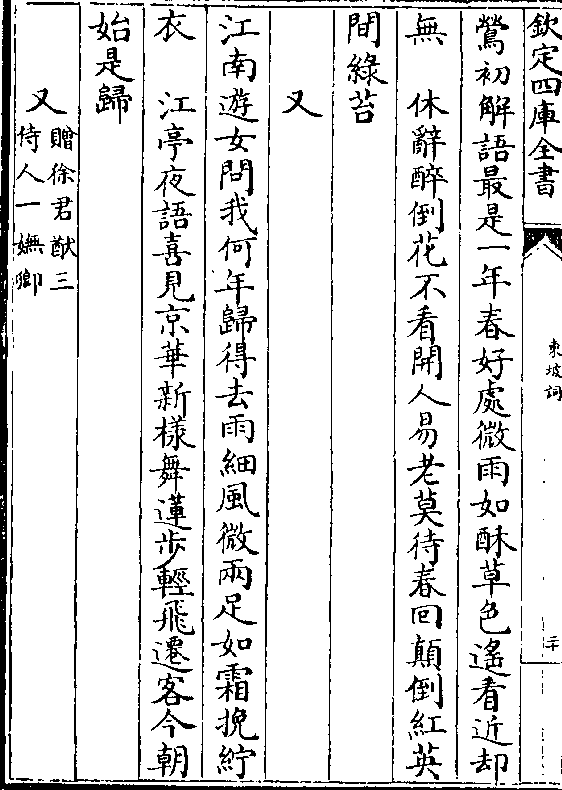 欽定四庫全書
東坡詞
二十
鶯初解語最是一年春好處微雨如酥草色遙看近却
無　休辭醉倒花不看開人易老莫待春回顛倒紅英
間綠苔
又
江南遊女問我何年歸得去雨細風微兩足如霜挽紵
衣　江亭夜語喜見京華新様舞蓮步輕飛遷客今朝
始是歸
又
贈徐君猷三
侍人一嫵卿